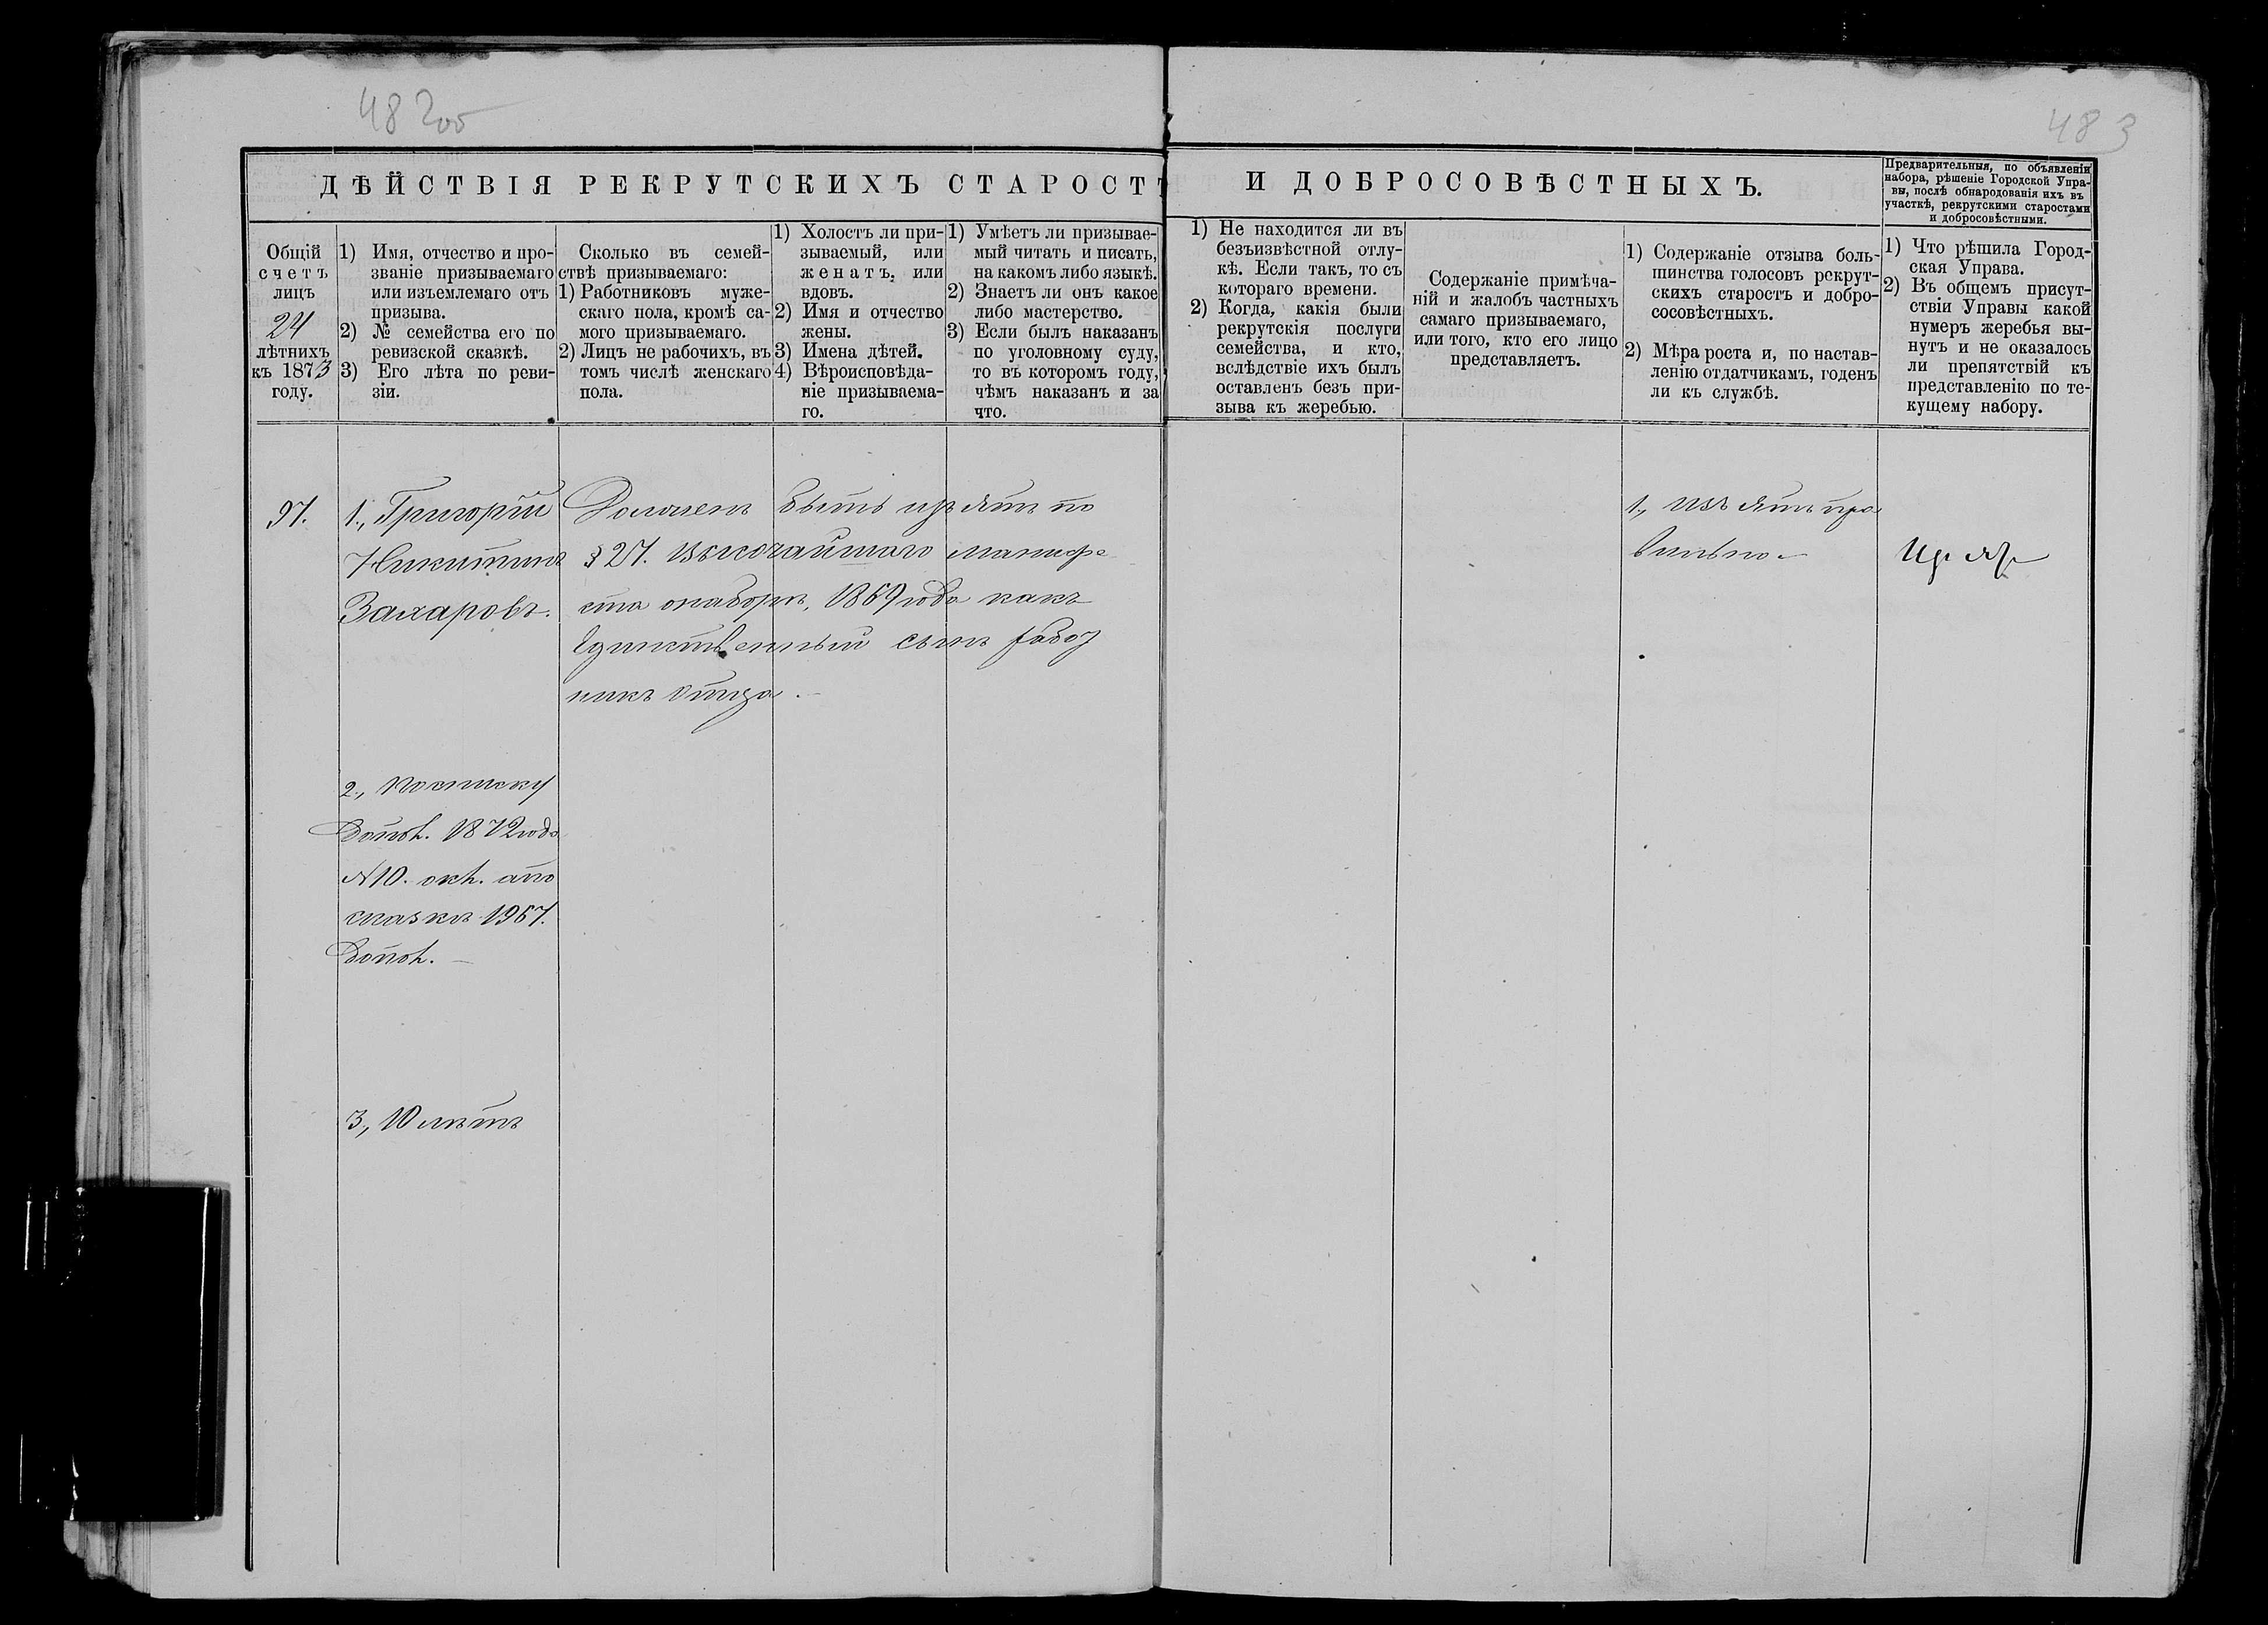 482об
483
ДѢЙСТВІЯ РЕКРУТСКИХЪ СТАРОСТЪ И ДОБРОСОВѢСТНЫХЪ.
Предварительныя, по объявленіи
набора, рѣшеніе Городской Упра-
вы, послѣ обнародованія ихъ въ
участкѣ, рекрутскими старостами
и добросовѣстными.
Общій
счетъ
лицъ
24
лѣтнихъ
къ 1873
году.
1) Имя, отчество и про-
званіе призываемаго
или изъемлемаго отъ
призыва.
2) № семейства его по
ревизской сказкѣ.
3) Его лѣта по реви-
зіи.
Сколько въ семей-
ствѣ призываемаго:
1) Работниковъ муже-
скаго пола, кромѣ са-
мого призываемаго.
2) Лицъ не рабочихъ, въ
томъ числѣ женскаго
пола.
1) Холостъ ли при-
зываемый, или
женатъ, или
вдовъ.
2) Имя и отчество
жены.
3) Имена дѣтей.
4) Вѣроисповѣда-
ніе призываема-
го.
1) Умѣетъ ли призывае-
мый читать и писать,
на какомъ либо языкѣ.
2) Знаетъ ли онъ какое
либо мастерство.
3) Если былъ наказанъ
по уголовному суду,
то въ которомъ году,
чѣмъ наказанъ и за
что.
1) Не находится ли въ
безъизвѣстной отлу-
кѣ. Если такъ, то съ
котораго времени.
2) Когда, какія были
рекрутскія послуги
семейства, и кто,
вслѣдствіе ихъ былъ
оставленъ безъ при-
зыва къ жеребью.
Содержаніе примѣча-
ній и жалобъ частныхъ
самаго призываемаго,
или того, кто его лицо
представляетъ.
1) Содержаніе отзыва боль-
шинства голосовъ рекрут-
скихъ старостъ и добро-
совѣстныхъ.
2) Мѣра роста и, по настав-
ленію отдатчикамъ, годенъ
ли къ службѣ.
1) Что рѣшила Город-
ская Управа.
2) Въ общемъ присут-
ствіи Управы какой
нумеръ жеребья вы-
нутъ и не оказалось
ли препятствій къ
представленію по те-
кущему набору.
97.
1., Григорій
Никитинъ
Захаровъ.
2., По списку
допол. 1872 года
№10. окл. а по
сказкѣ 1967.
допол. –
3., 10 лѣтъ
Долженъ быть изъятъ по
§ 27. Высочайшаго манифе
ста о наборѣ, 1869 года какъ
единственный сынъ работ
никъ отца. –
1., Изъятъ пра
вильно –
Изъят